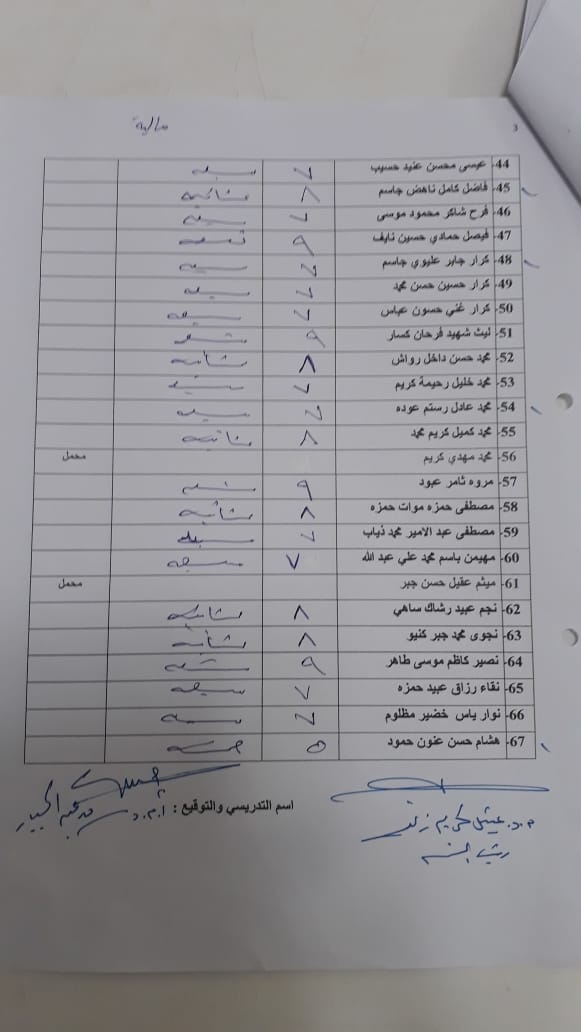 مالية
3
44- عيسى محسن عنيد حسيب ٧ سبعه
45- فاضل كامل ناهض جاسم ٨ ثمانيه
46- فرح شاكر محمود موسى ٧ سبعه
47- فيصل حمادي حسين نايف ٩ تسعه
48- كرار جابر عليوي جاسم ٧ سبعه
49- كرار حسين حسن محمد ٧ سبعه
50- كرار غني حسون عباس ٧ سبعه
51- ليث شهيد فرحان كسار ٩ تسعه
52- محمد حسن داخل رواش ٨ ثمانيه
53- محمد خليل رحيمة كريم ٧ سبعه
54- محمد عادل رستم عوده ٧ سبعه
55- محمد كميل كريم محمد ٨ ثمانيه
56- محمد مهدي كريم محمل
57- مروه ثامر عبود ٩ تسعه
58- مصطفى حمزه موات حمزه ٨ ثمانيه
59- مصطفى عبد الامير محمد ذياب ٧ سبعه
60- مهيمن باسم محمد علي عبد الله ٧ سبعه
61- ميثم عقيل حسن جبر محمل
62- نجم عبيد رشاك ساهي ٨ ثمانيه
63- نجوى محمد جبر كنيو ٨ ثمانيه
64- نصير كاظم موسى طاهر ٩ تسعه
65- نقاء رزاق عبيد حمزه ٧ سبعه
66- نوار ياس خضير مظلوم ٧ سبعه
67- هشام حسن عنون حمود ٥ خمسه
اسم التدريسي والتوقيع : أ.م.د